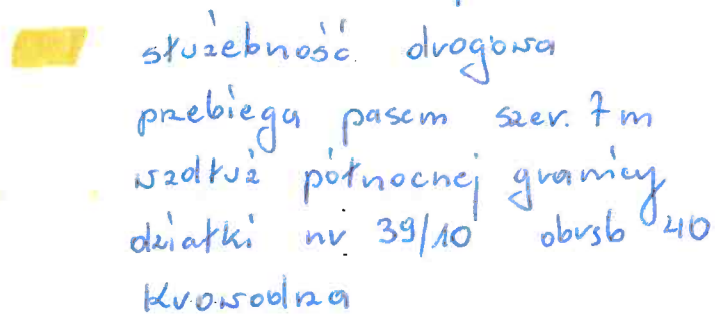 służebność drogowa
przebiega pasem szer. 7 m
wzdłuż północnej granicy
działki nr 39/10 obręb 40
Krowodrza